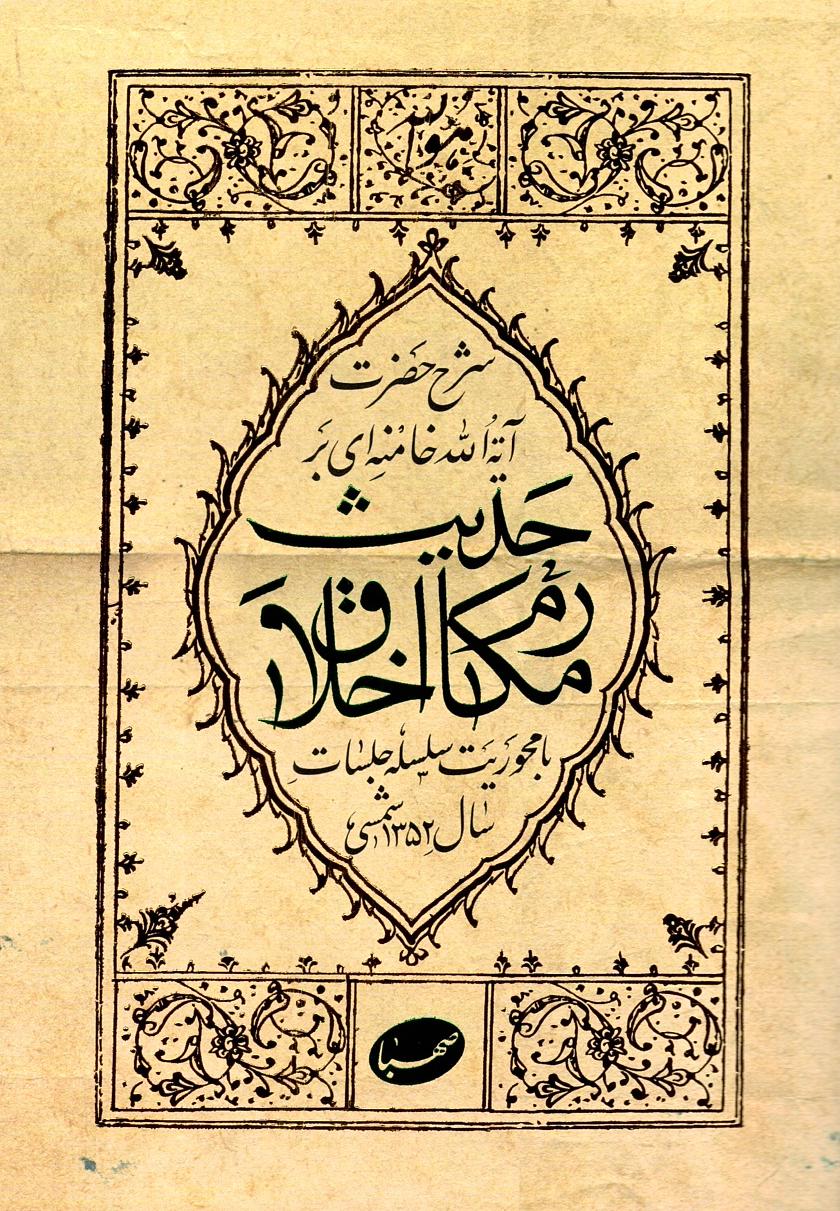 هو
شرح حضرت
آیة الله خامنه ای بر
حدیث
مکارم
اخلاق
با محوریت سلسله جلسات
سال ۱۳۵۲ شمسی
صهبا